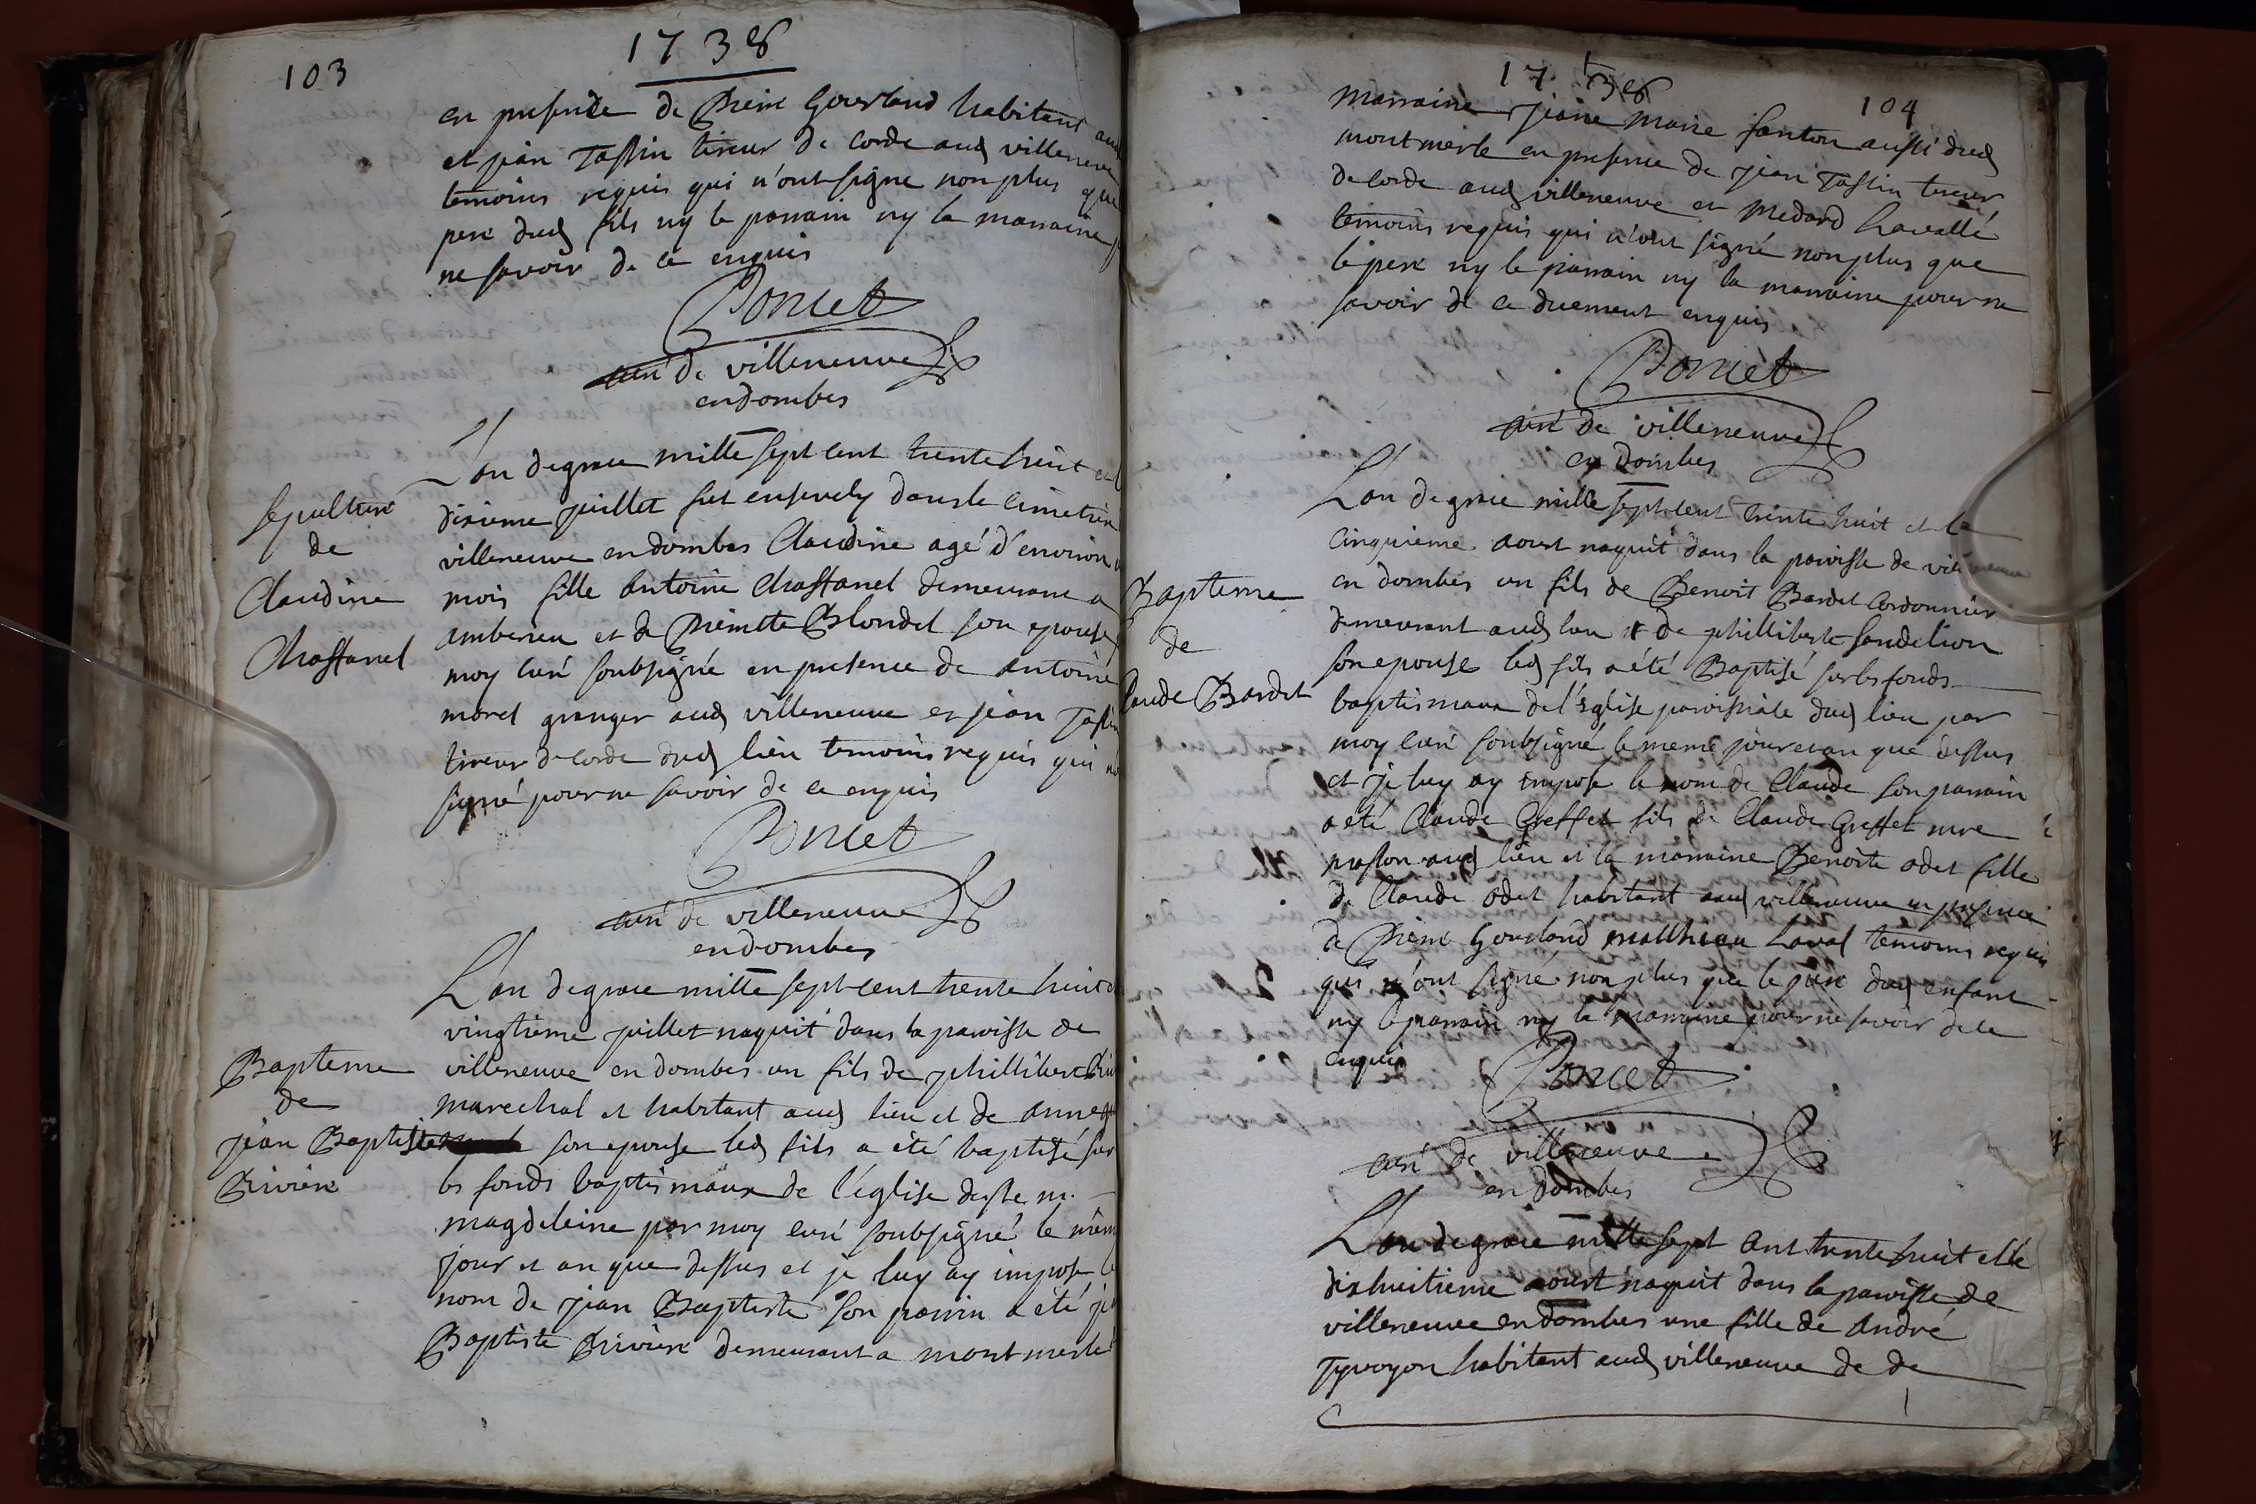 103
1738
en presence de Pierre Gourland habitant aud
et jean Tassin tireur de corde aud villeneuve
temoins requis qui n'ont signe non plus que
pere dud fils ny le parrain ny la marraine p
ne savoir de ce enquis
Poncet
curé de villeneuve
en dombes
Sepulture
de
Claudine
Chastanel
L'an de grace mille sept cent trente huit et
dixieme juillet fut ensevely dans le cimetiere
villeneuve en dombes Claudine agé d'environ
mois fille antoine Chastanel demeurant a
amberieu et de Pierrette Blondel son epouse
moy curé soubsigné en presence de antoine
morel granger aud villeneuve et jean Tassin
tireur de corde dud lieu temoins requis qui n
signé pour ne savoir de ce enquis
Poncet
curé de villeneuve
en dombes
Bapteme
de
jean Baptiste
Riviere
L'an de grace mille sept cent trente huit et
vingtieme juillet naquit dans la paroisse de
villeneuve en dombes un fils de phillibert Rivi
marechal et habitant aud lieu et de anne
son epouse led fils a été baptisé sur
les fonds baptismaux de l'église de ste m.
magdeleine par moy curé soubsigné le même
jour et an que dessus et je luy ay imposé le
nom de jean Baptiste son parrin a été je
Baptiste Riviere demeurant a montmerle
1738
104
marraine jeane marie fanton aussi dud
montmerle en presence de jean Tassin tireur
de corde aud villeneuve et medard Lavallé
temoins requis qui n'ont signé non plus que
le pere ny le parrain ny la marraine pour ne
savoir de ce duement enquis
Poncet
curé de villeneuve
en dombes
Bapteme
de
Claude Bardet
L'an de grace mille sept cent trente huit et le
cinquieme aoust naquit dans la paroisse de villeneuve
en dombes un fils de Benoit Bardet Cordonnier
demeurant aud lieu et de philliberte Sandelion
son epouse led fils a été Baptisé sur les fonds
baptismaux de l'église paroissiale dud lieu par
moy curé soubsigné le meme jour et an que dessus
et je luy ay imposé le nom de Claude son parrain
a été Claude Greffet fils de Claude Greffet mre
masson aud lieu et la marraine Benoite odet fille
de Claude odet habitant aud villeneuve en presence
de Pierre Gourland matthieu Laval temoins requis
qui n'ont signé non plus que le pere dud enfant
ny le parrain ny la marraine pour ne savoir de ce
enquis
Poncet
curé de villeneuve
en dombes
L'an de grace mille sept cent trente huit et le
dix huitieme aoust naquit dans la paroisse de
villeneuve en dombes une fille de André
Tyvoyon habitant aud villeneuve de de